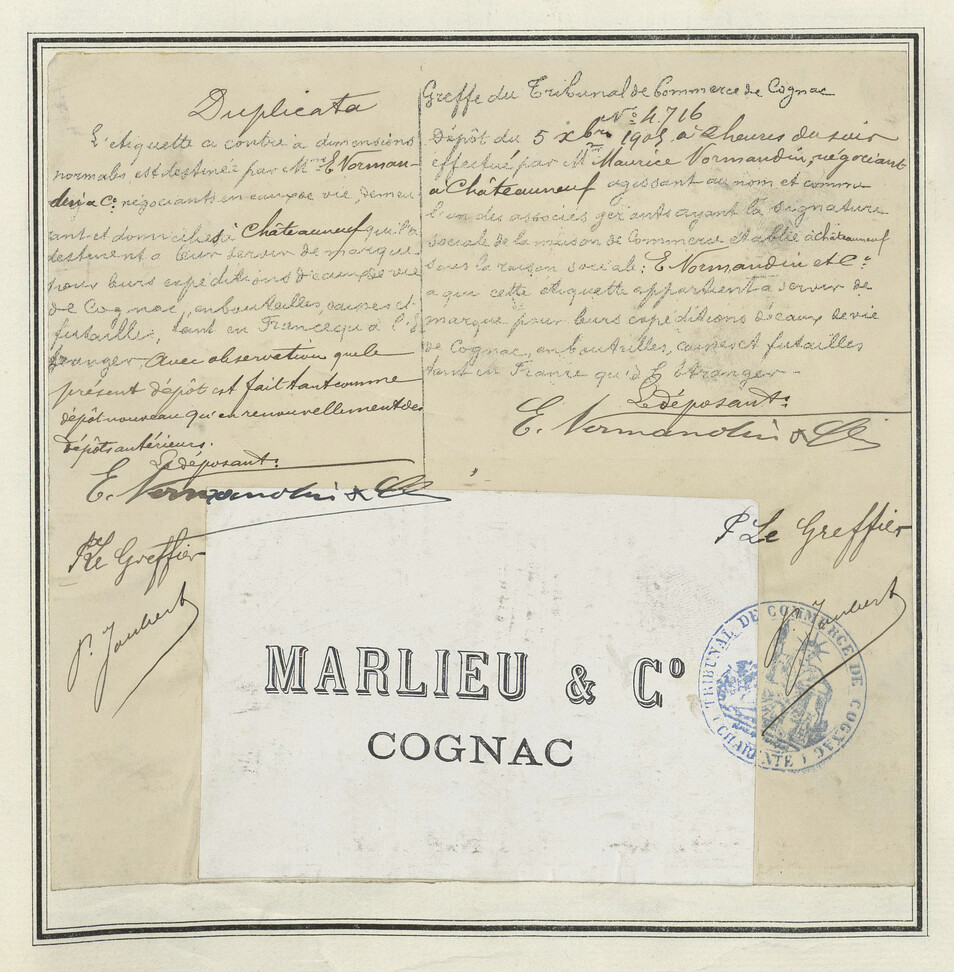 Duplicata
L'étiquette ci contre à dimensions
normales, est destinée par Mrs E. Norman-
din & Co négociants en eaux de vie, demeu
rant et domiciliés à Châteauneuf qui la
destinent à leur servir de marque
pour leurs expéditions d'eaux de vie
de Cognac, en bouteilles, caisses et
futailles, tant en France qu'à l'É
tranger. Avec observation que le
présent dépôt est fait tant comme
dépôt nouveau qu'en renouvellement des
dépôts antérieurs.
Le déposant:
E. Normandin & Cie
Pr Le Greffier
P. Joubert
Greffe du Tribunal de Commerce de Cognac
No 4.716
Dépôt du 5 xbre 1905 à 2 heures du soir
effectué par Mr Maurice Normandin, négociant
à Châteauneuf agissant au nom et comme
l'un des associés gérants ayant la signature
sociale de la maison de Commerce établie à Châteauneuf
sous la raison sociale: E. Normandin et Co
à qui cette étiquette appartient à servir de
marque pour leurs expéditions d'eaux de vie
de Cognac, en bouteilles, caisses et futailles
tant en France qu'à l'Étranger
Le déposant:
E. Normandin & Cie
P Le Greffier
P. Joubert
TRIBUNAL DE COMMERCE DE COGNAC
(CHARENTE)
MARLIEU & Co
COGNAC